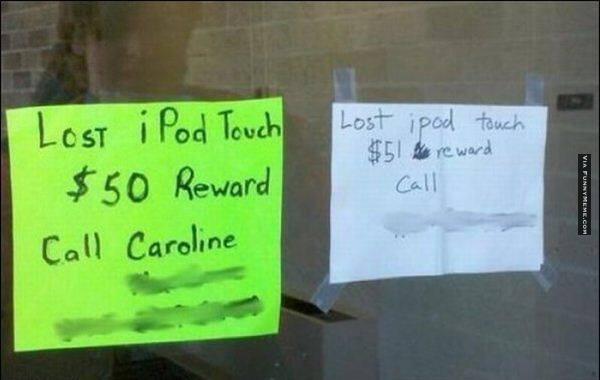 Lost iPod Touch
$50 Reward
Call Caroline
Lost ipod touch
$51 reward
Call
VIA FUNNYMEME.COM